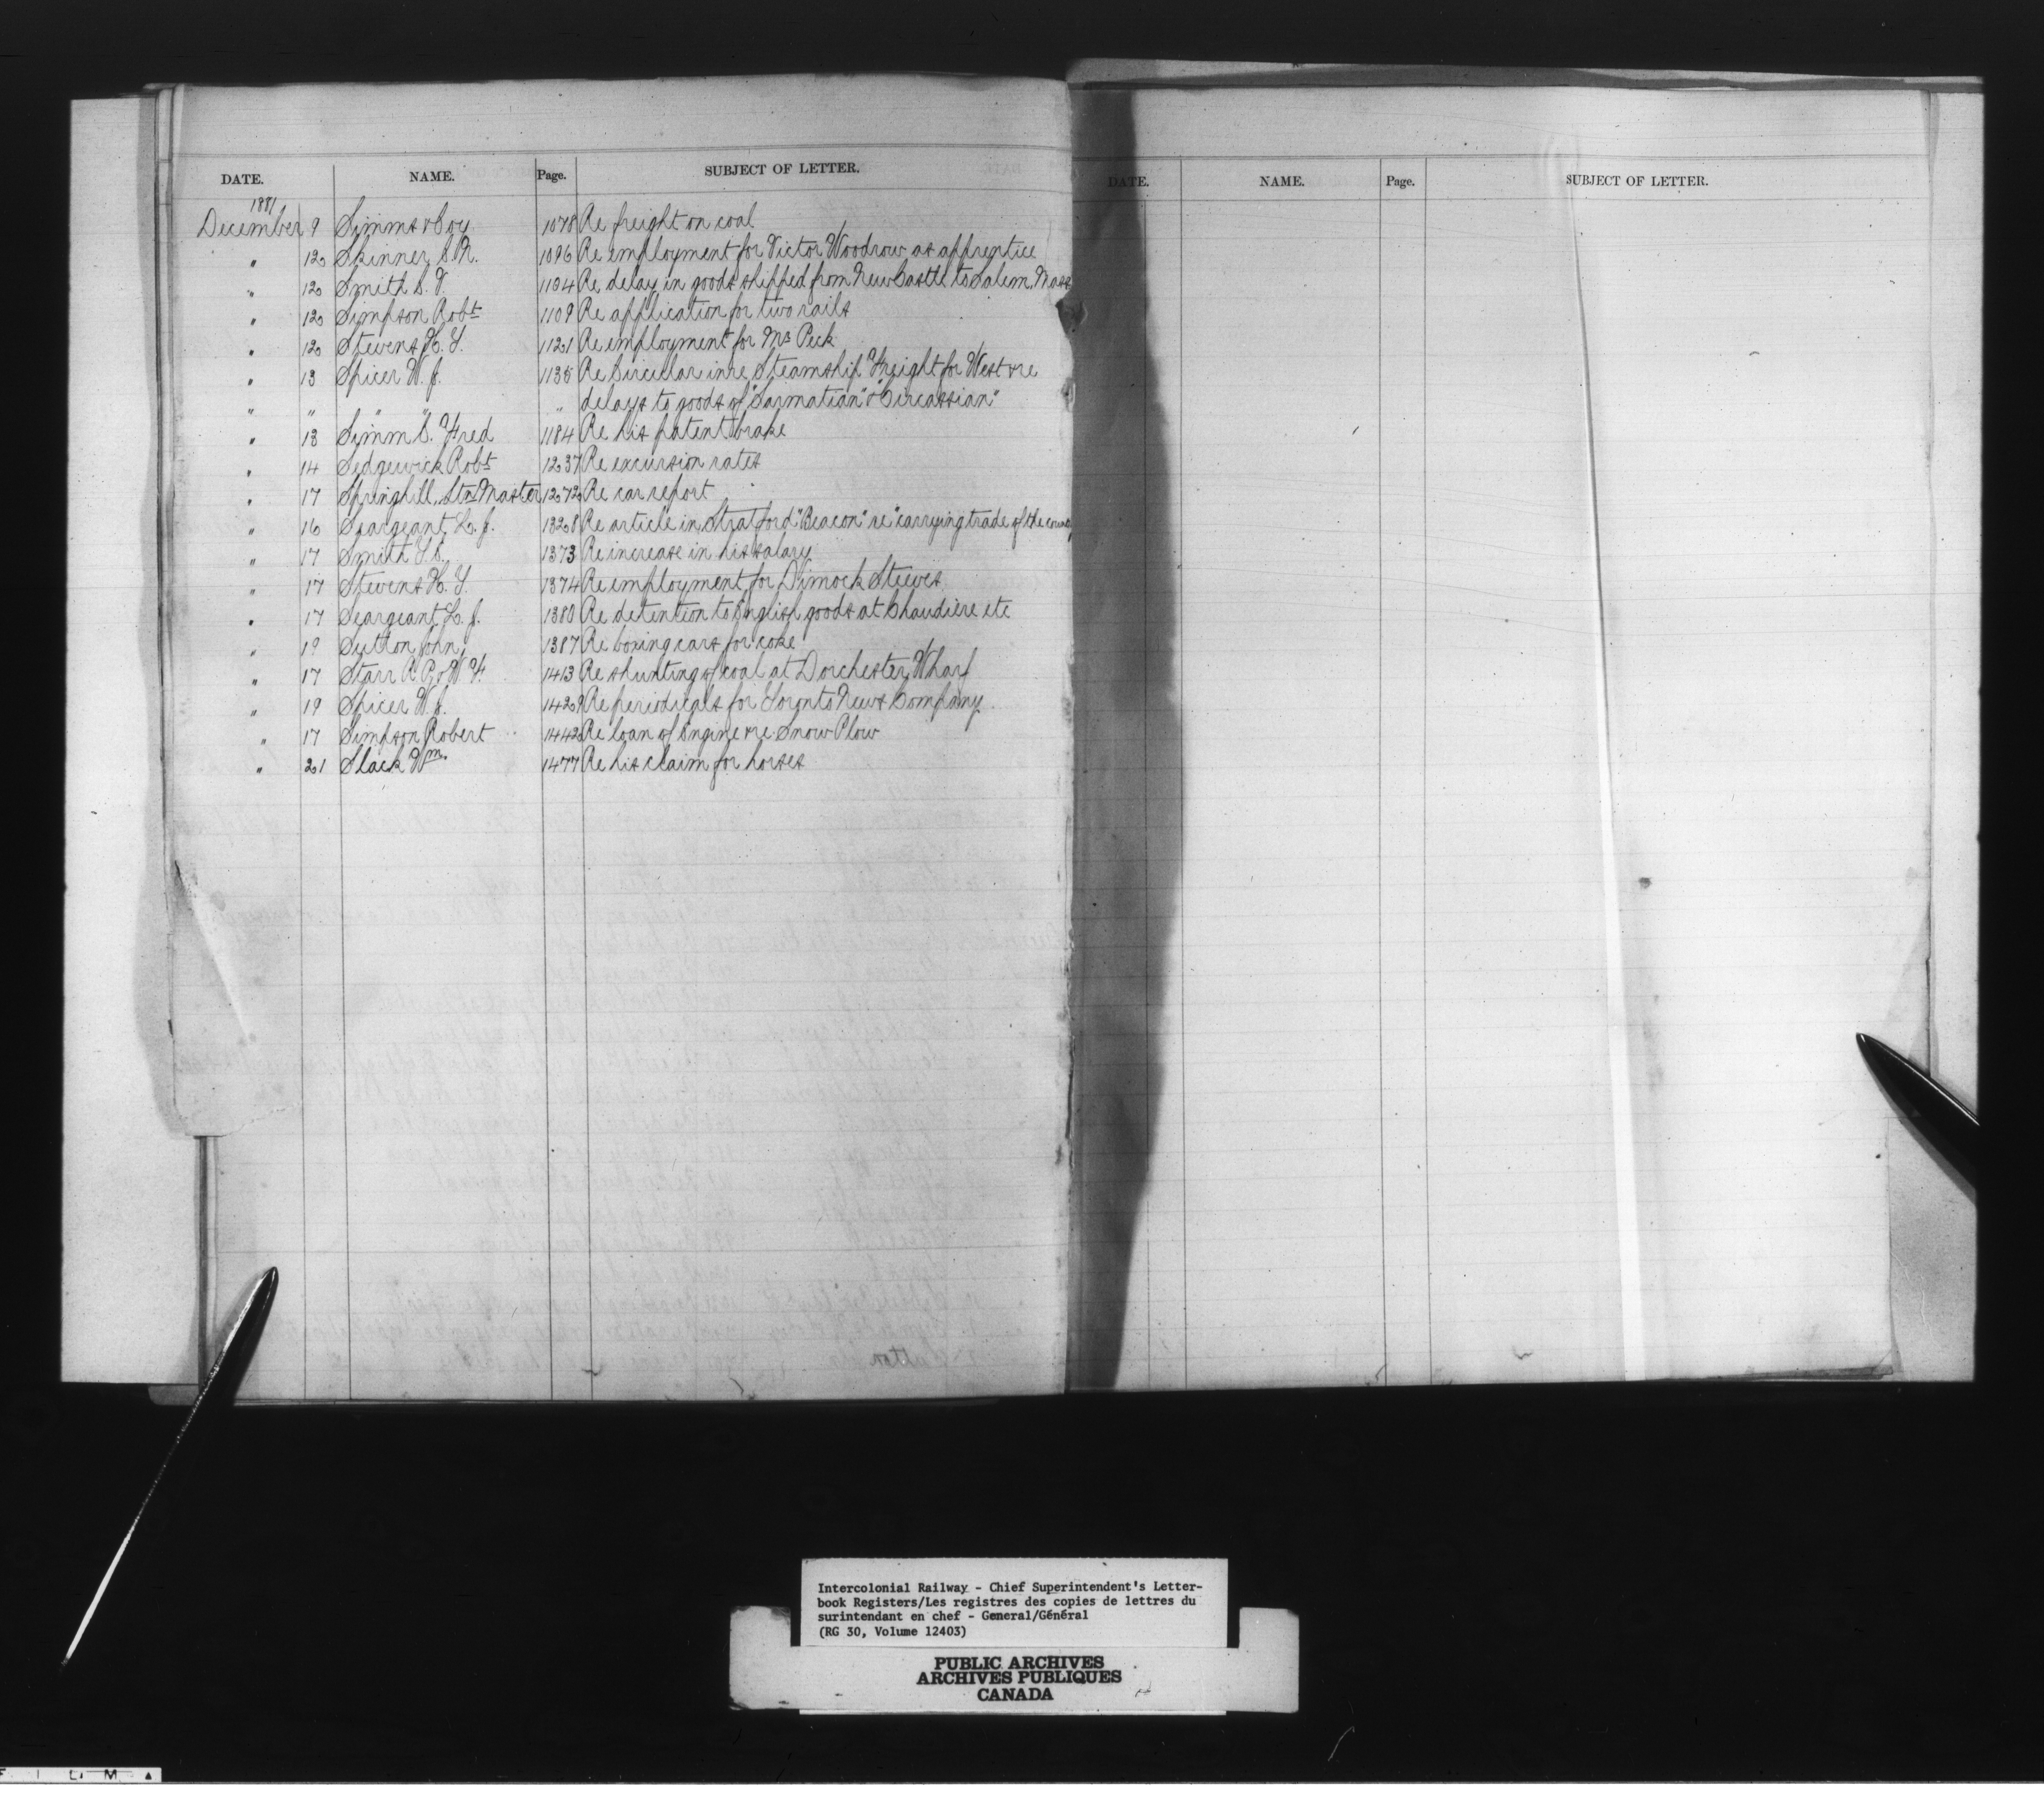 DATE. NAME. Page. SUBJECT OF LETTER.
1881
December 9 Simms & Coy 1078 Re freight on coal
" 12 Skinner S. R. 1096 Re employment for Victor Woodrow as apprentice
" 12 Smith S. T. 1104 Re delay in goods shipped from New Castle to Salem, Mass
" 12 Simpson Robt 1109 Re application for two rails
" 12 Stevens H. Y. 1121 Re employment for Mr Peck
" 13 Spicer W. J. 1135 Re Circular in re Steamship Freight for West & re
" " " " " delays to goods of "Sarmatian" & "Circassian"
" 13 Simm S. Fred 1184 Re his patent brake
" 14 Sedgewick Robt 1237 Re excursion rates
" 17 Springhill, Stn Master 1272 Re car report
" 16 Seargeant L. J. 1328 Re article in Stratford "Beacon" re "carrying trade of the
" 17 Smith 1373 Re increase in his salary
" 17 Stevens H. Y. 1374 Re employment for Dimock Steeves
" 17 Seargeant L. J. 1380 Re detention to English goods at Chaudiere etc
" 19 Sutton John 1387 Re boxing cars for coke
" 17 Starr R. P. & W. F. 1413 Re shunting of coal at Dorchester Wharf
" 19 Spicer W. J. 1429 Re periodicals for Toronto News Company
" 17 Simpson Robert 1442 Re loan of Engine & re Snow Plow
" 21 Slack Wm. 1477 Re his claim for horses
DATE. NAME. Page. SUBJECT OF LETTER.
Intercolonial Railway - Chief Superintendent's Letter-
book Registers/Les registres des copies de lettres du
surintendant en chef - General/Général
(RG 30, Volume 12403)
PUBLIC ARCHIVES
ARCHIVES PUBLIQUES
CANADA